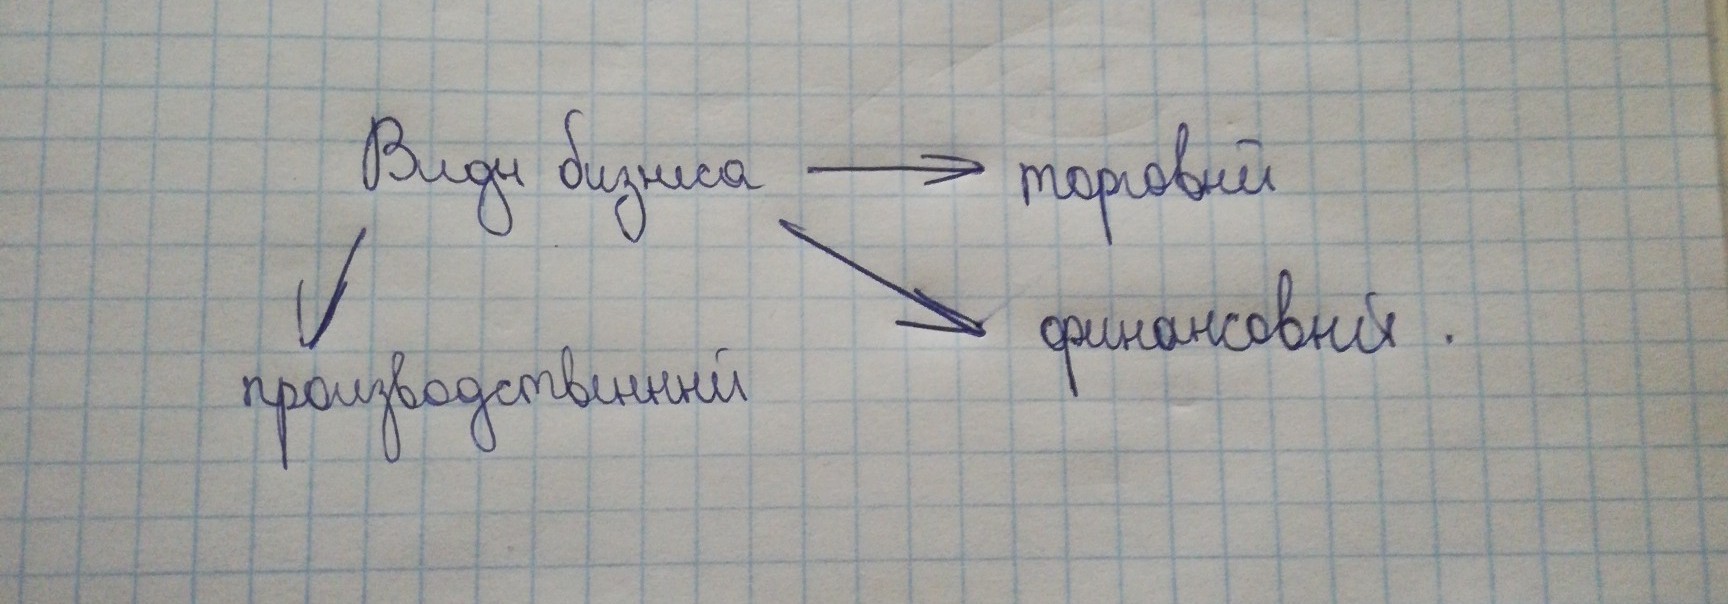 Виды бизнеса → торговый
финансовый.
производственный